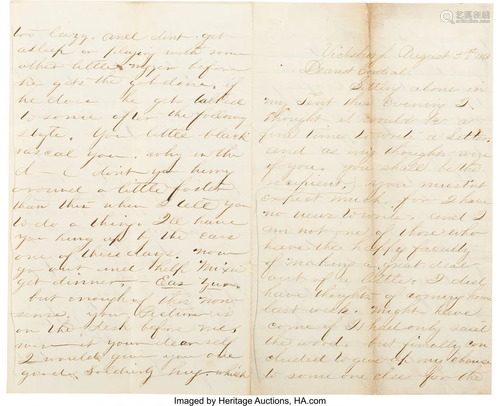 too lazy. and dont get
asleep or playing with some
other little nigger before
he gets the job done, if
he does he get talked
to some after the following
style. You little black
rascal you. why in the
d—l don't you hurry
around a little faster
than this when I tell you
to do a thing. I'll have
you hung up by the ears
one of these days. now
go out and help
get dinner.
but enough of this non
sense, your picture is
on the desk before me,
were it your dear self
I would give you one
good Soldiers hug. which
Vicksburgh August 2d
Dearest
Sitting alone in
my Tent this Evening I
thought it would be a
fine time to write a letter
and as my thoughts were
of you. you shall be the
recipient, you mustnt
expect much, for I have
no news to write. and I
am not one of those who
have the happy faculty
of making a great deal
out of a little. I did
have thoughts of coming home
last week. might have
come if I had only said
the word. but finally con
cluded to give up my chance
to some one else for the
Imaged by Heritage Auctions, HA.com